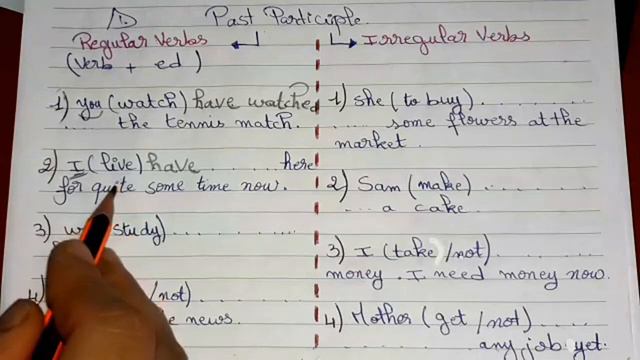 1. Past Participle
Regular Verbs
(Verb + ed)
1) you (watch) have watched
..... the tennis match.
2) I (live) have ....... here
for quite some time now.
3) w study) ..............
4) /not) ..........
e news.
Irregular Verbs
1) she (to buy) .........
..... some flowers at the
market.
2) Sam (make) .......
.... a cake.
3) I (take /not)
money. I need money now.
4) Mother (get /not) ......
any job yet.